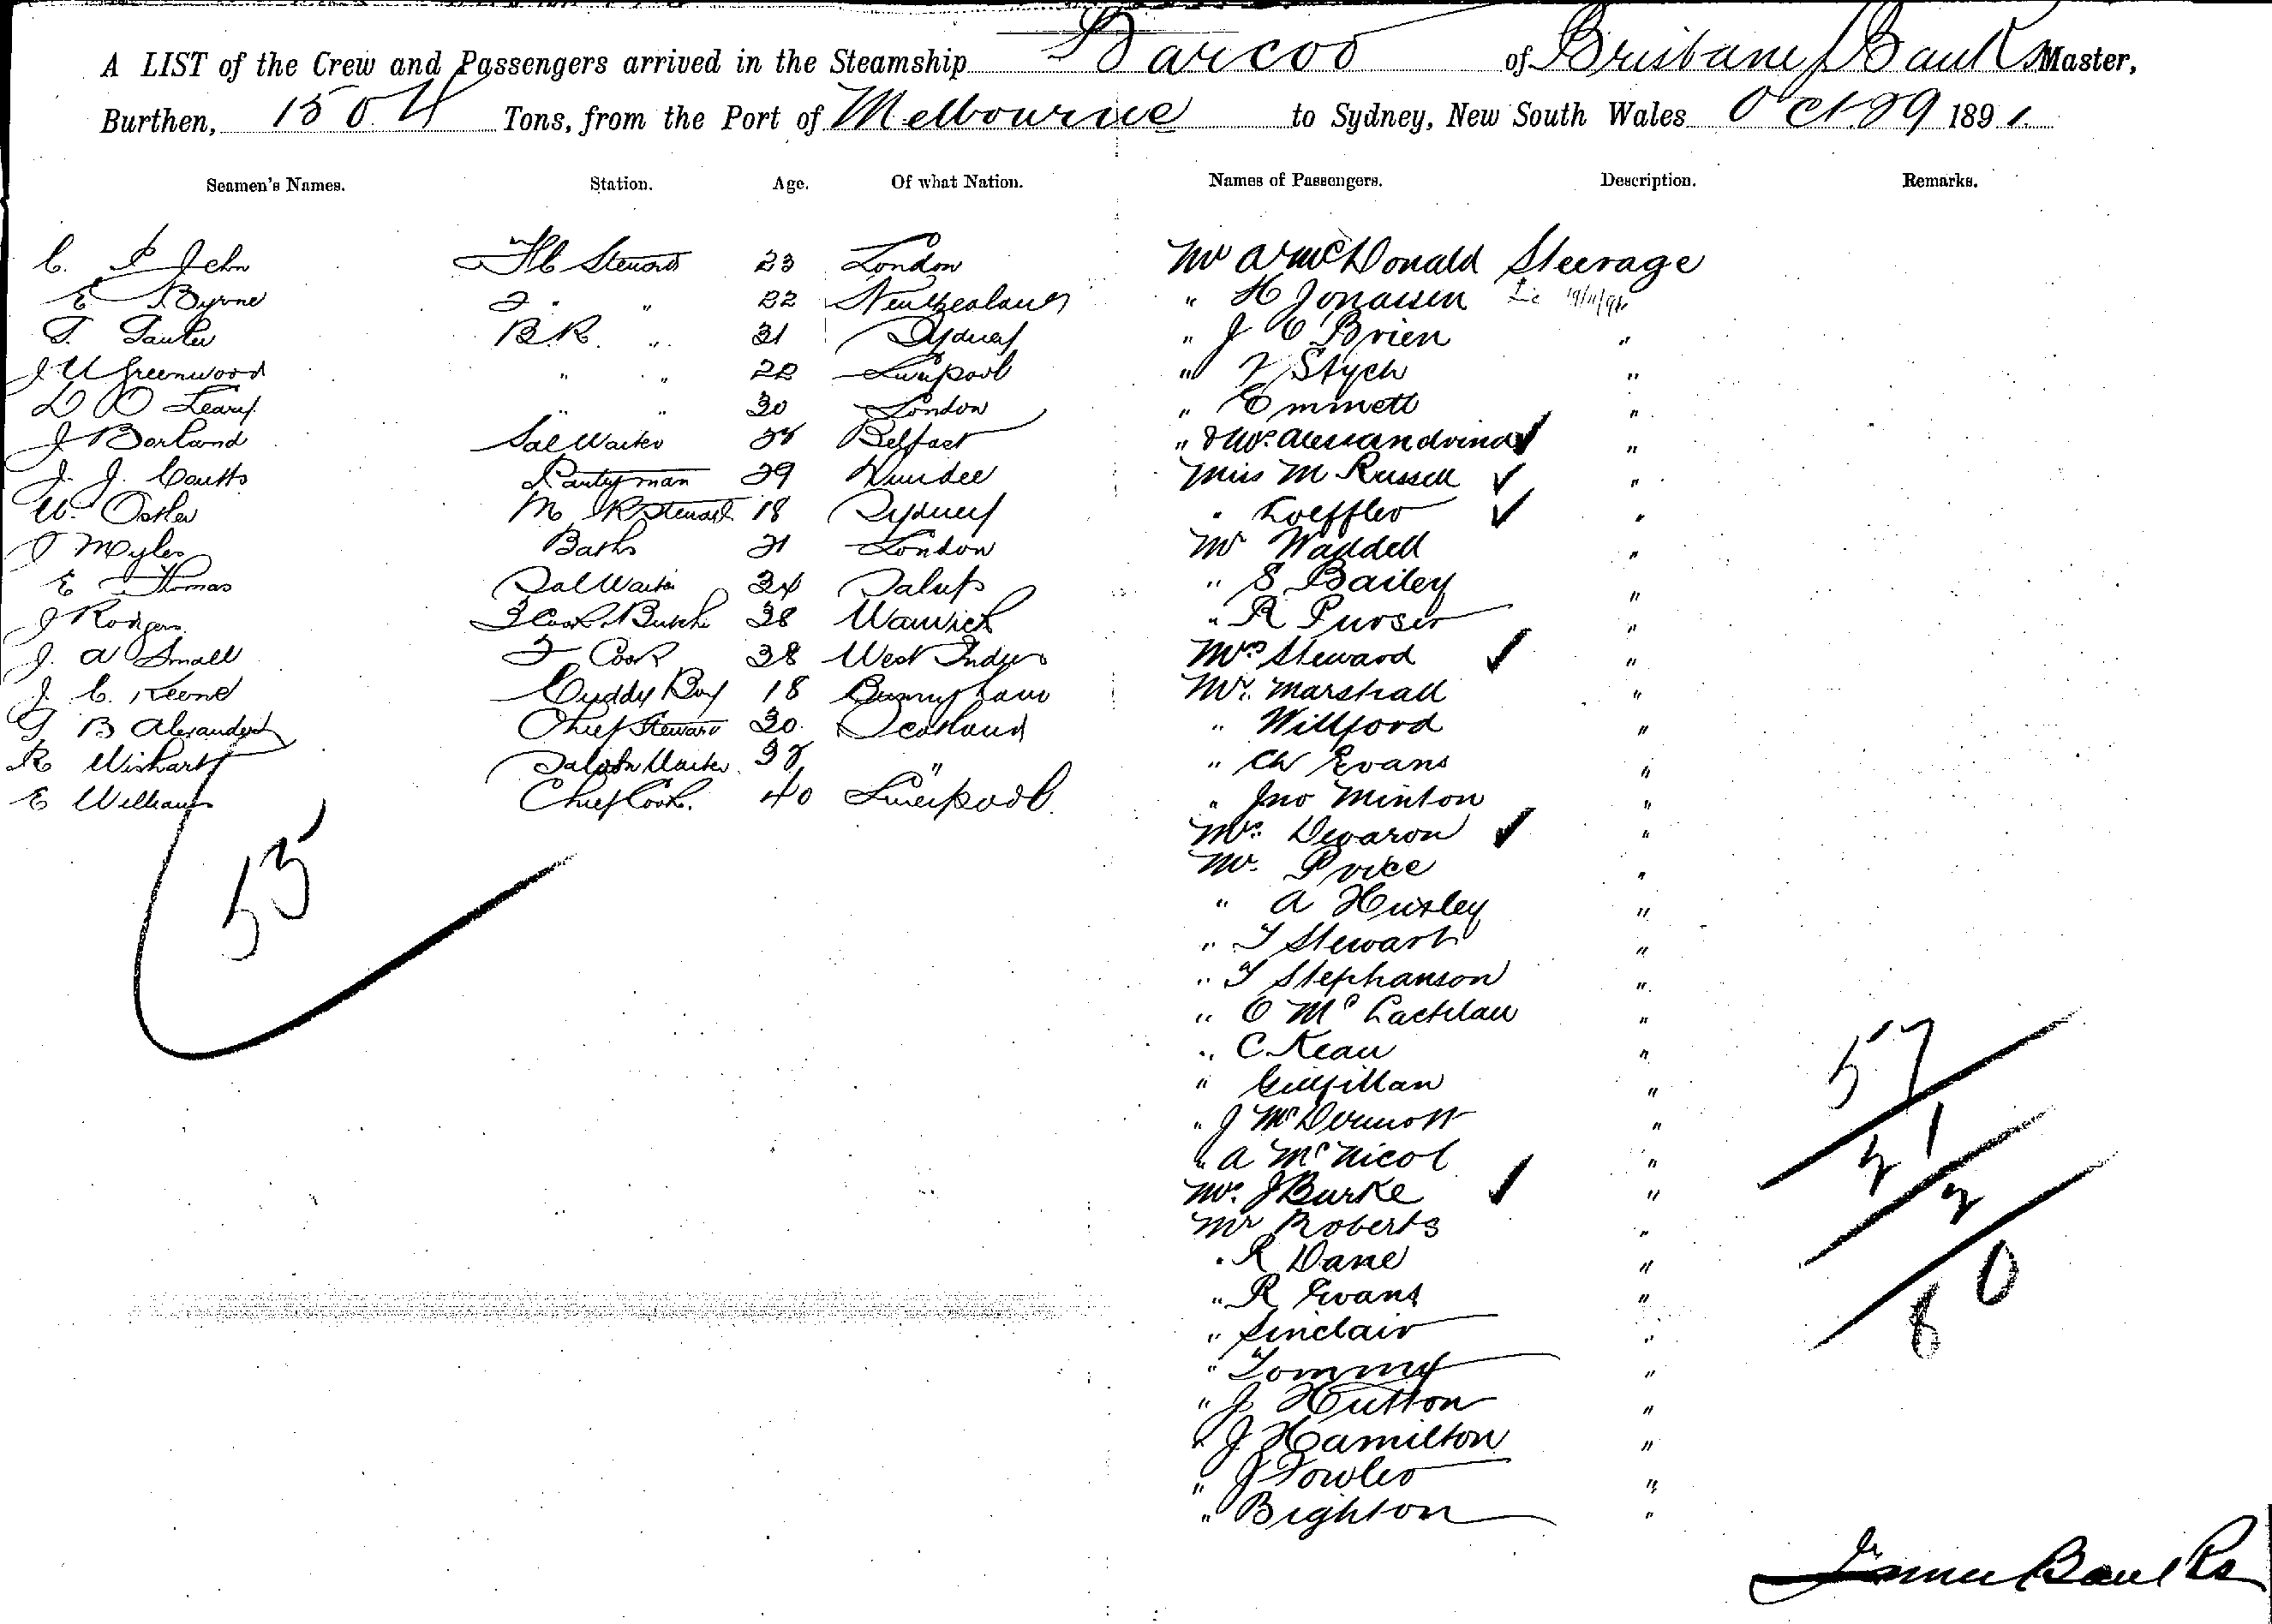 A LIST of the Crew and Passengers arrived in the Steamship Barcoo of Brisbane J Banks Master,
Burthen, 1504 Tons, from the Port of Melbourne to Sydney, New South Wales Oct. 29 1891.
Seamen's Names. Station. Age. Of what Nation. Names of Passengers. Description. Remarks.
C. P John Steward 23 London
E Byrne " " 22 New Zealand
T. B.R. " 21 Sydney
J W Greenwood " " 22 Liverpool
D O Leary " " 30 London
J Borland Sal Waiter Belfast
J. J. Coutts Pantryman 29 Dundee
W. Ostler M R Steward 18 Sydney
J Myles Baths 21 London
E Thomas Sal Waiter 24
J Rodgers 28 Warwick
J. A Small Cook 38 West Indies
J. C. Keene Cuddy Boy 18 Birmingham
T B Alexander Chief Steward 30. Scotland
R Wishart Saloon Waiter "
E Williams Chief Cook. 40 Liverpool.
55
Mr A McDonald Steerage
" H Jonassen
" J O Brien "
" Stych "
" Emmett "
" "
Miss M Russell "
" Loeffler "
Mr Waddell "
" S Bailey "
" R Purser "
Mrs Steward "
Mr. Marshall "
" Willford "
" Ch Evans "
" Jno Minton "
Mrs. Devaron "
Mr. Price "
" A Huxley "
" T Stewart "
" T Stephanson "
" O McLachlan "
" C. Kean "
" Gillfillan "
" J McDermott "
" A McNicol "
Mrs. J Burke "
Mr Roberts "
" R Dane "
" R Evans "
" Sinclair "
" Tommy "
" J Hutton "
" J Hamilton "
" J Fowler "
" Bighton "
57
21
2
80
James Banks